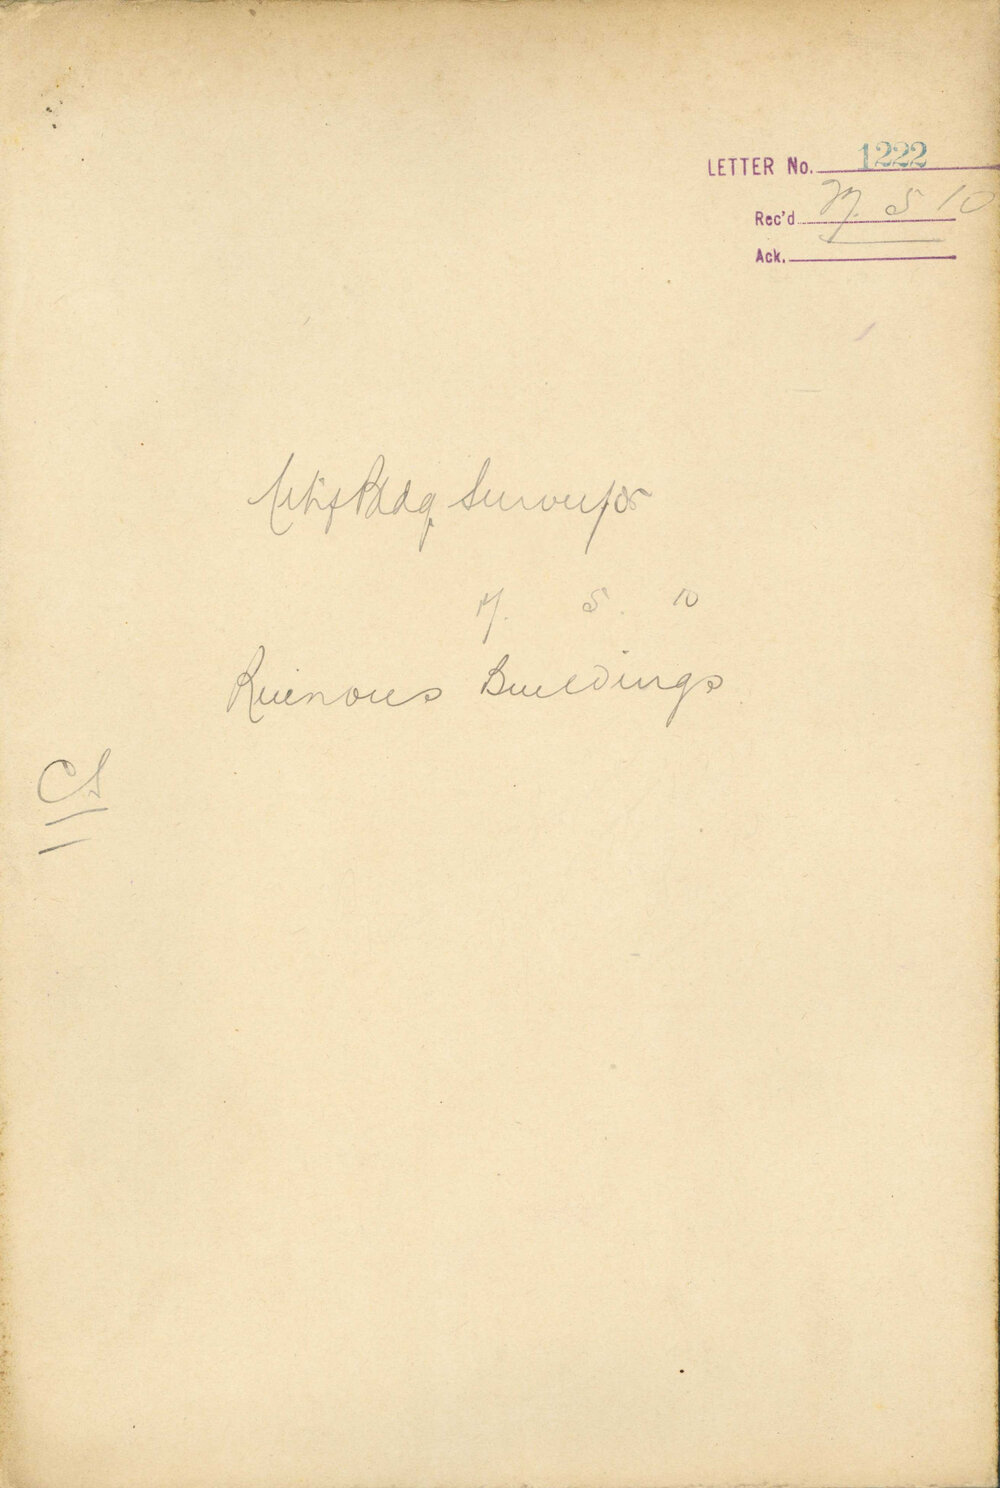 LETTER No. 1222
Rec'd 17. 5 10
Ack.
City Bldg Surveyor
17. 5. 10
Ruinous Buildings
CS